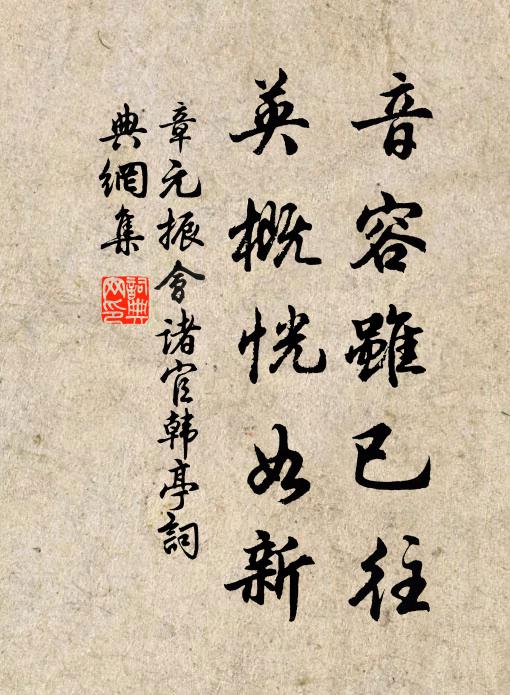 音容雖已往
英概恍如新
章元振會諸官韓亭詞
典網集
詞典
网印